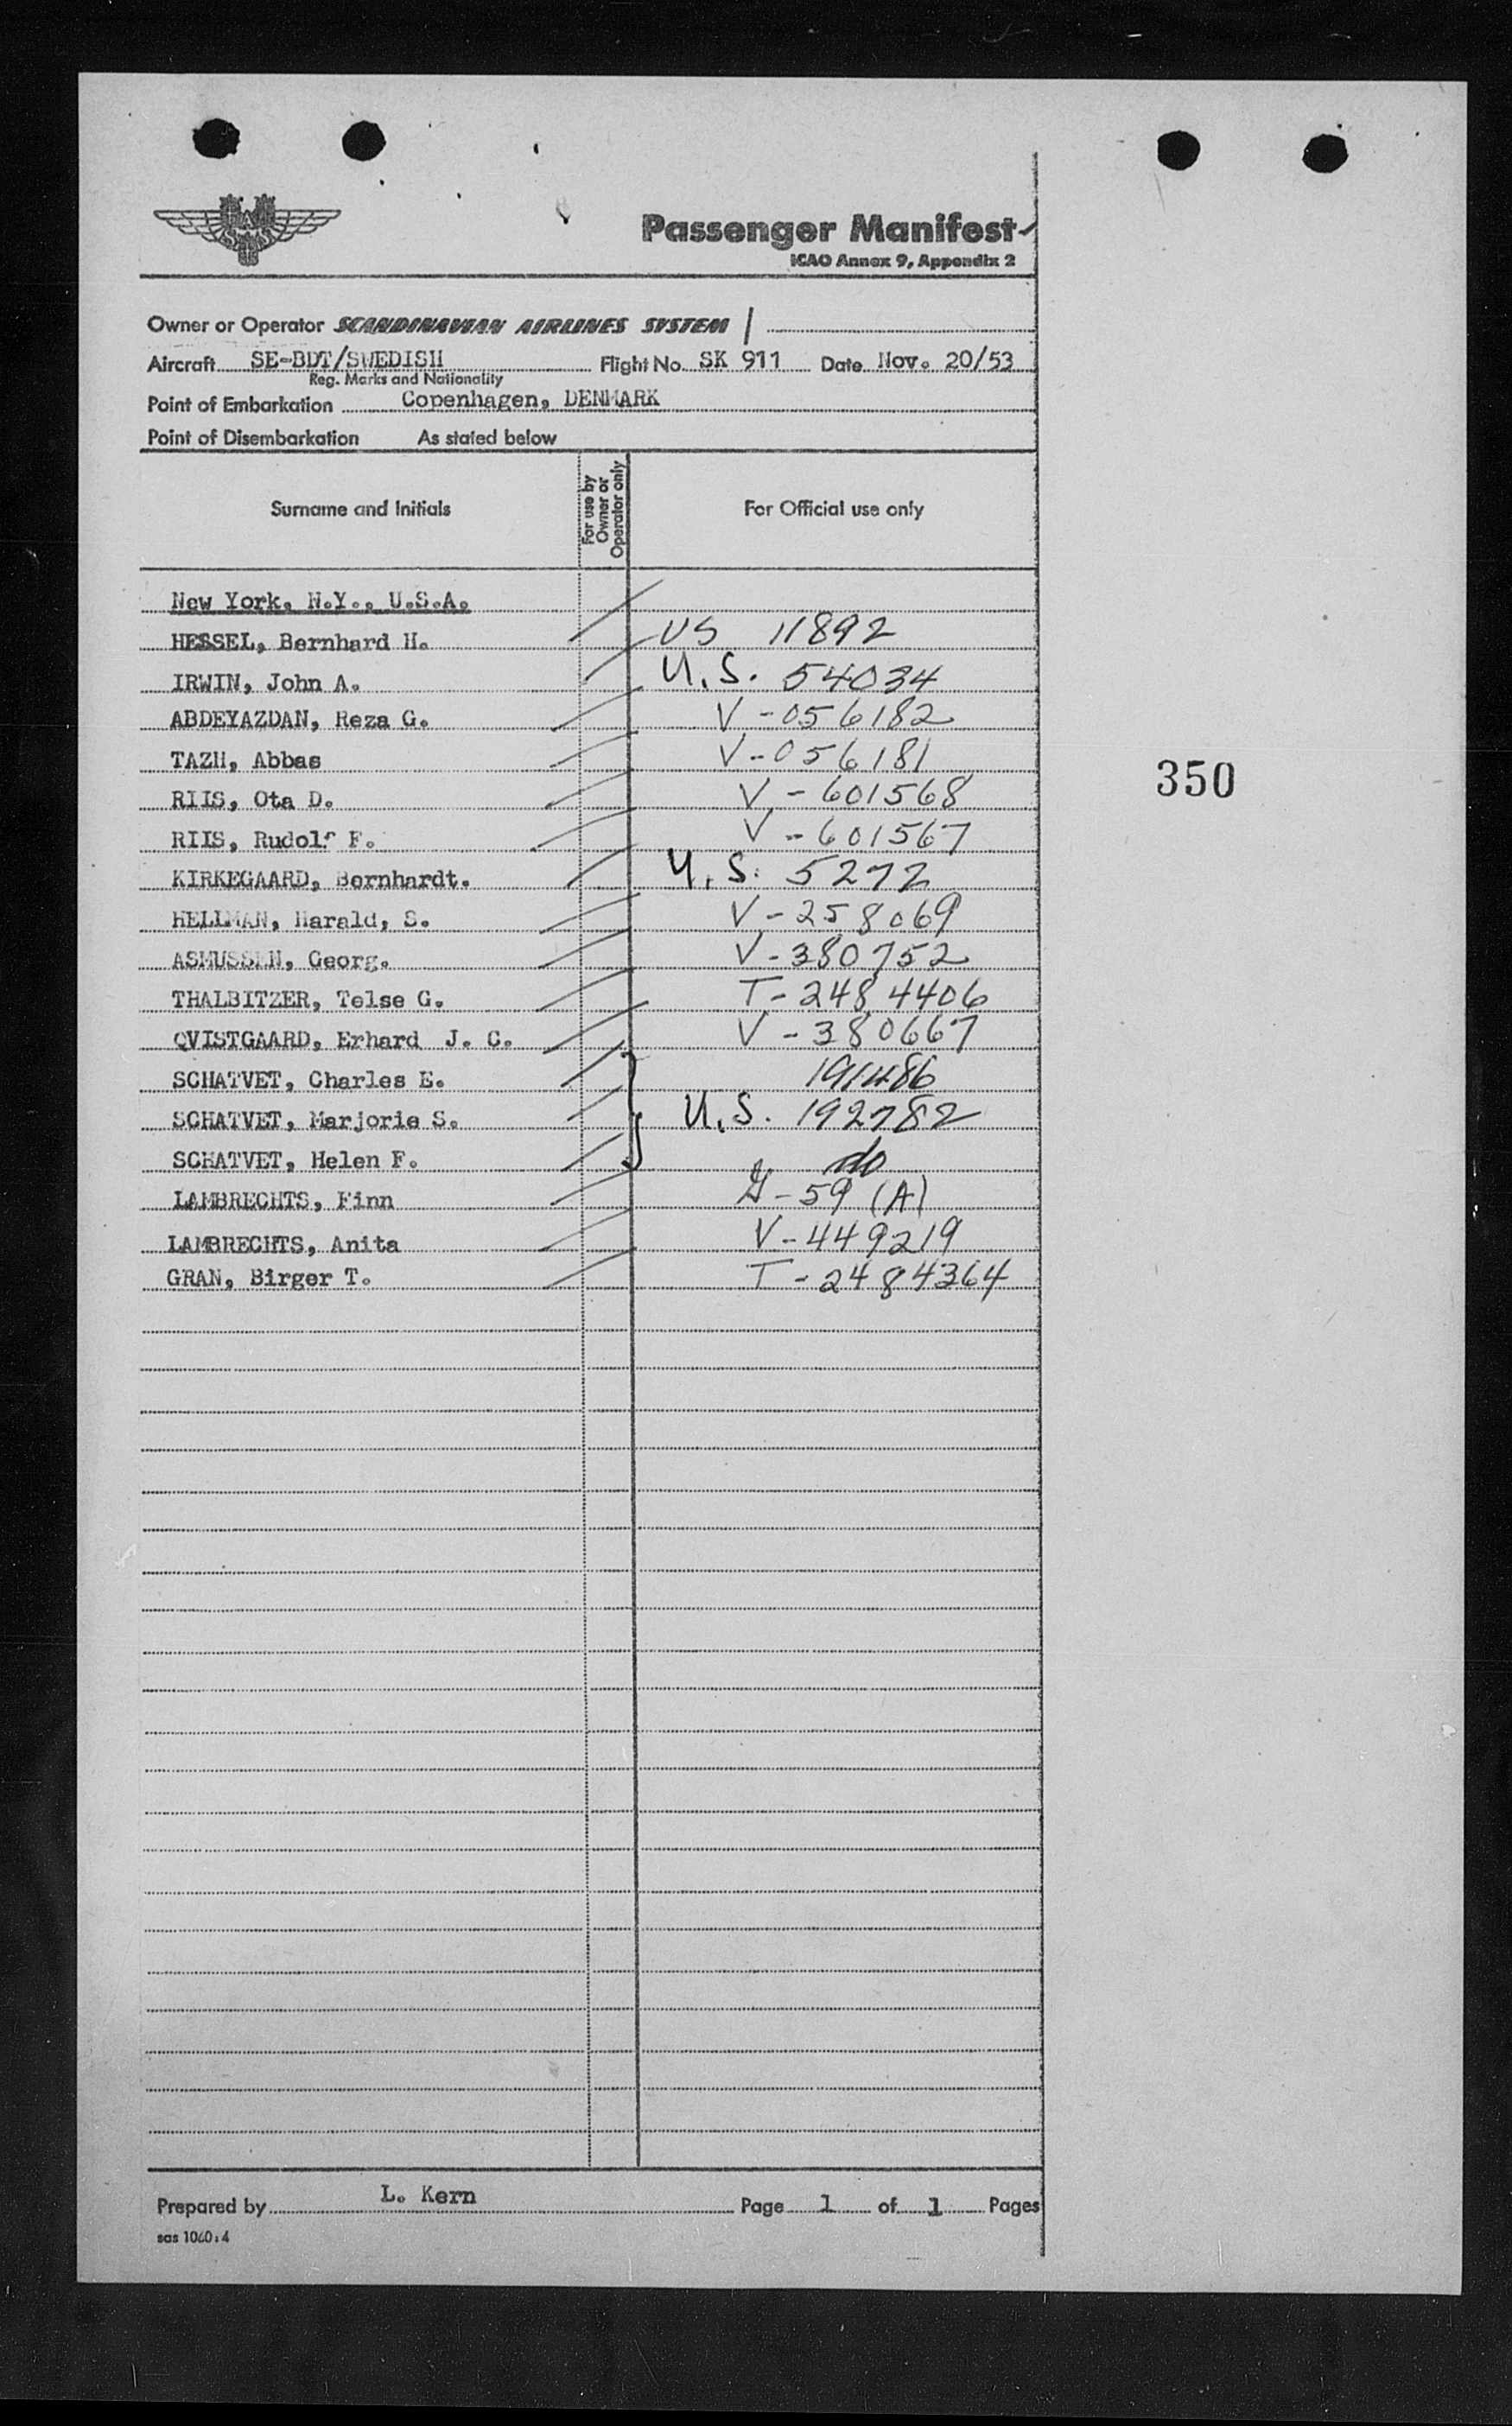 SAS
Passenger Manifest
ICAO Annex 9, Appendix 2
Owner or Operator SCANDINAVIAN AIRLINES SYSTEM
Aircraft SE-BDT/SWEDISH Flight No. SK 911 Date Nov. 20/53
Reg. Marks and Nationality
Point of Embarkation Copenhagen, DENMARK
Point of Disembarkation As stated below
Surname and Initials For use by Owner or Operator only For Official use only
New York, N.Y., U.S.A.
HESSEL, Bernhard H. US 11892
IRWIN, John A. U.S. 54034
ABDEYAZDAN, Reza G. V-056182
TAZH, Abbas V-056181
350
RIIS, Ota D. V-601568
RIIS, Rudolf F. V-601567
KIRKEGAARD, Bernhardt. U.S. 5272
HELLMAN, Harald, S. V-258069
ASMUSSEN, Georg. V-380752
THALBITZER, Telse G. T-2484406
QVISTGAARD, Erhard J. C. V-380667
SCHATVET, Charles E. 191486
SCHATVET, Marjorie S. U.S. 192782
SCHATVET, Helen F. do
LAMBRECHTS, Finn -59 (A)
LAMBRECHTS, Anita V-449219
GRAN, Birger T. T-2484364
Prepared by L. Kern Page 1 of 1 Pages
sas 1060:4